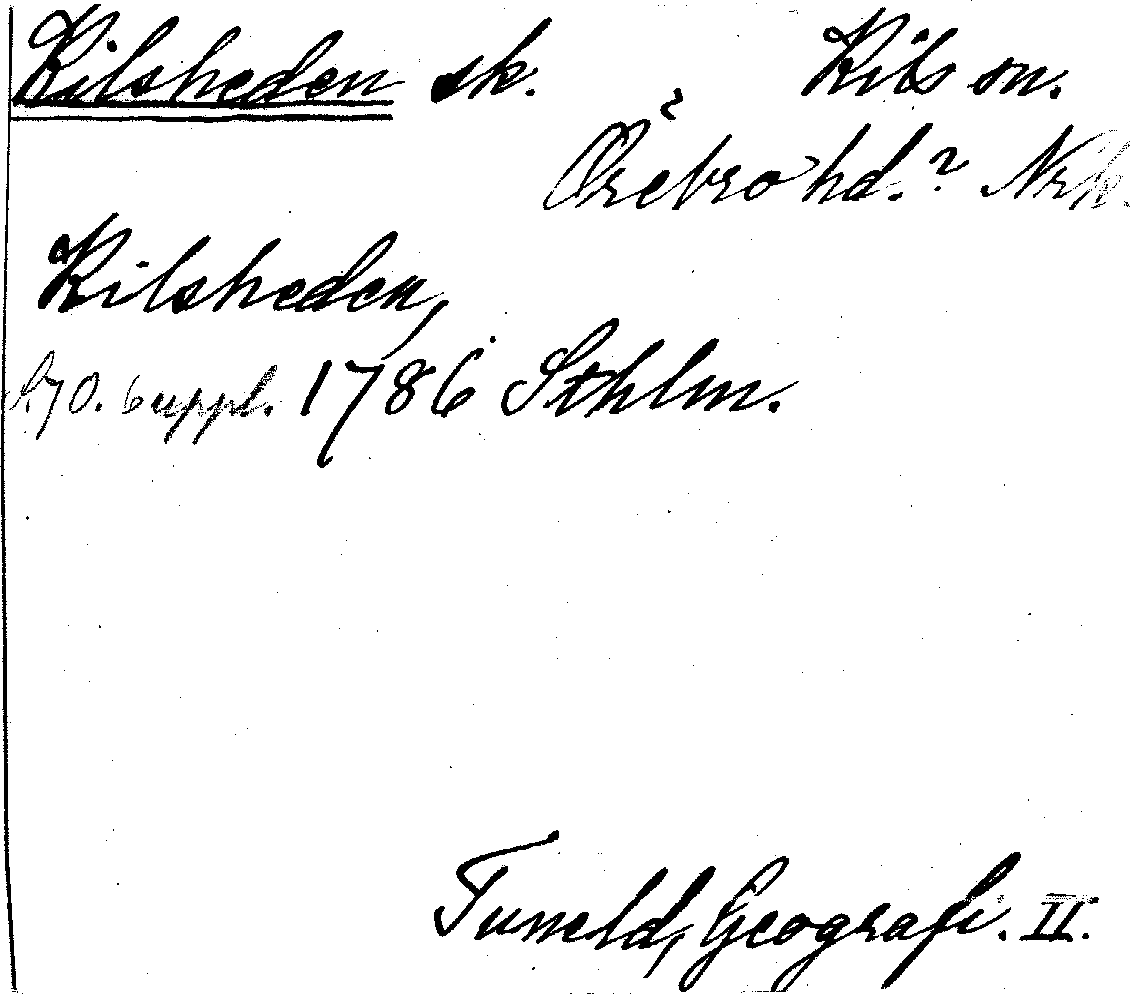 Kilsheden sk. Kils sn.
Örebro hd.? Nrk.
Kilsheden,
S. 70. 6 uppl. 1786 Sthlm.
Tuneld, Geografi. II.